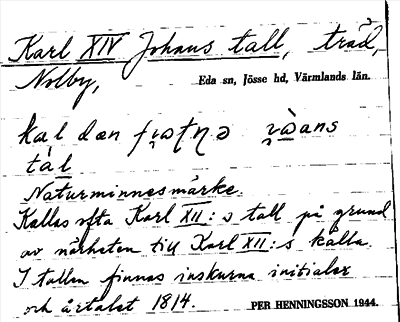 Karl XIV Johans tall, träd,
Nolby, Eda sn, Jösse hd, Värmlands län.
tàl
Naturminnesmärke.
Kallas ofta Karl XII:s tall på grund
av närheten till Karl XII:s källa.
I tallen finnas inskurna initialer
och årtalet 1814. PER HENNINGSSON 1944.